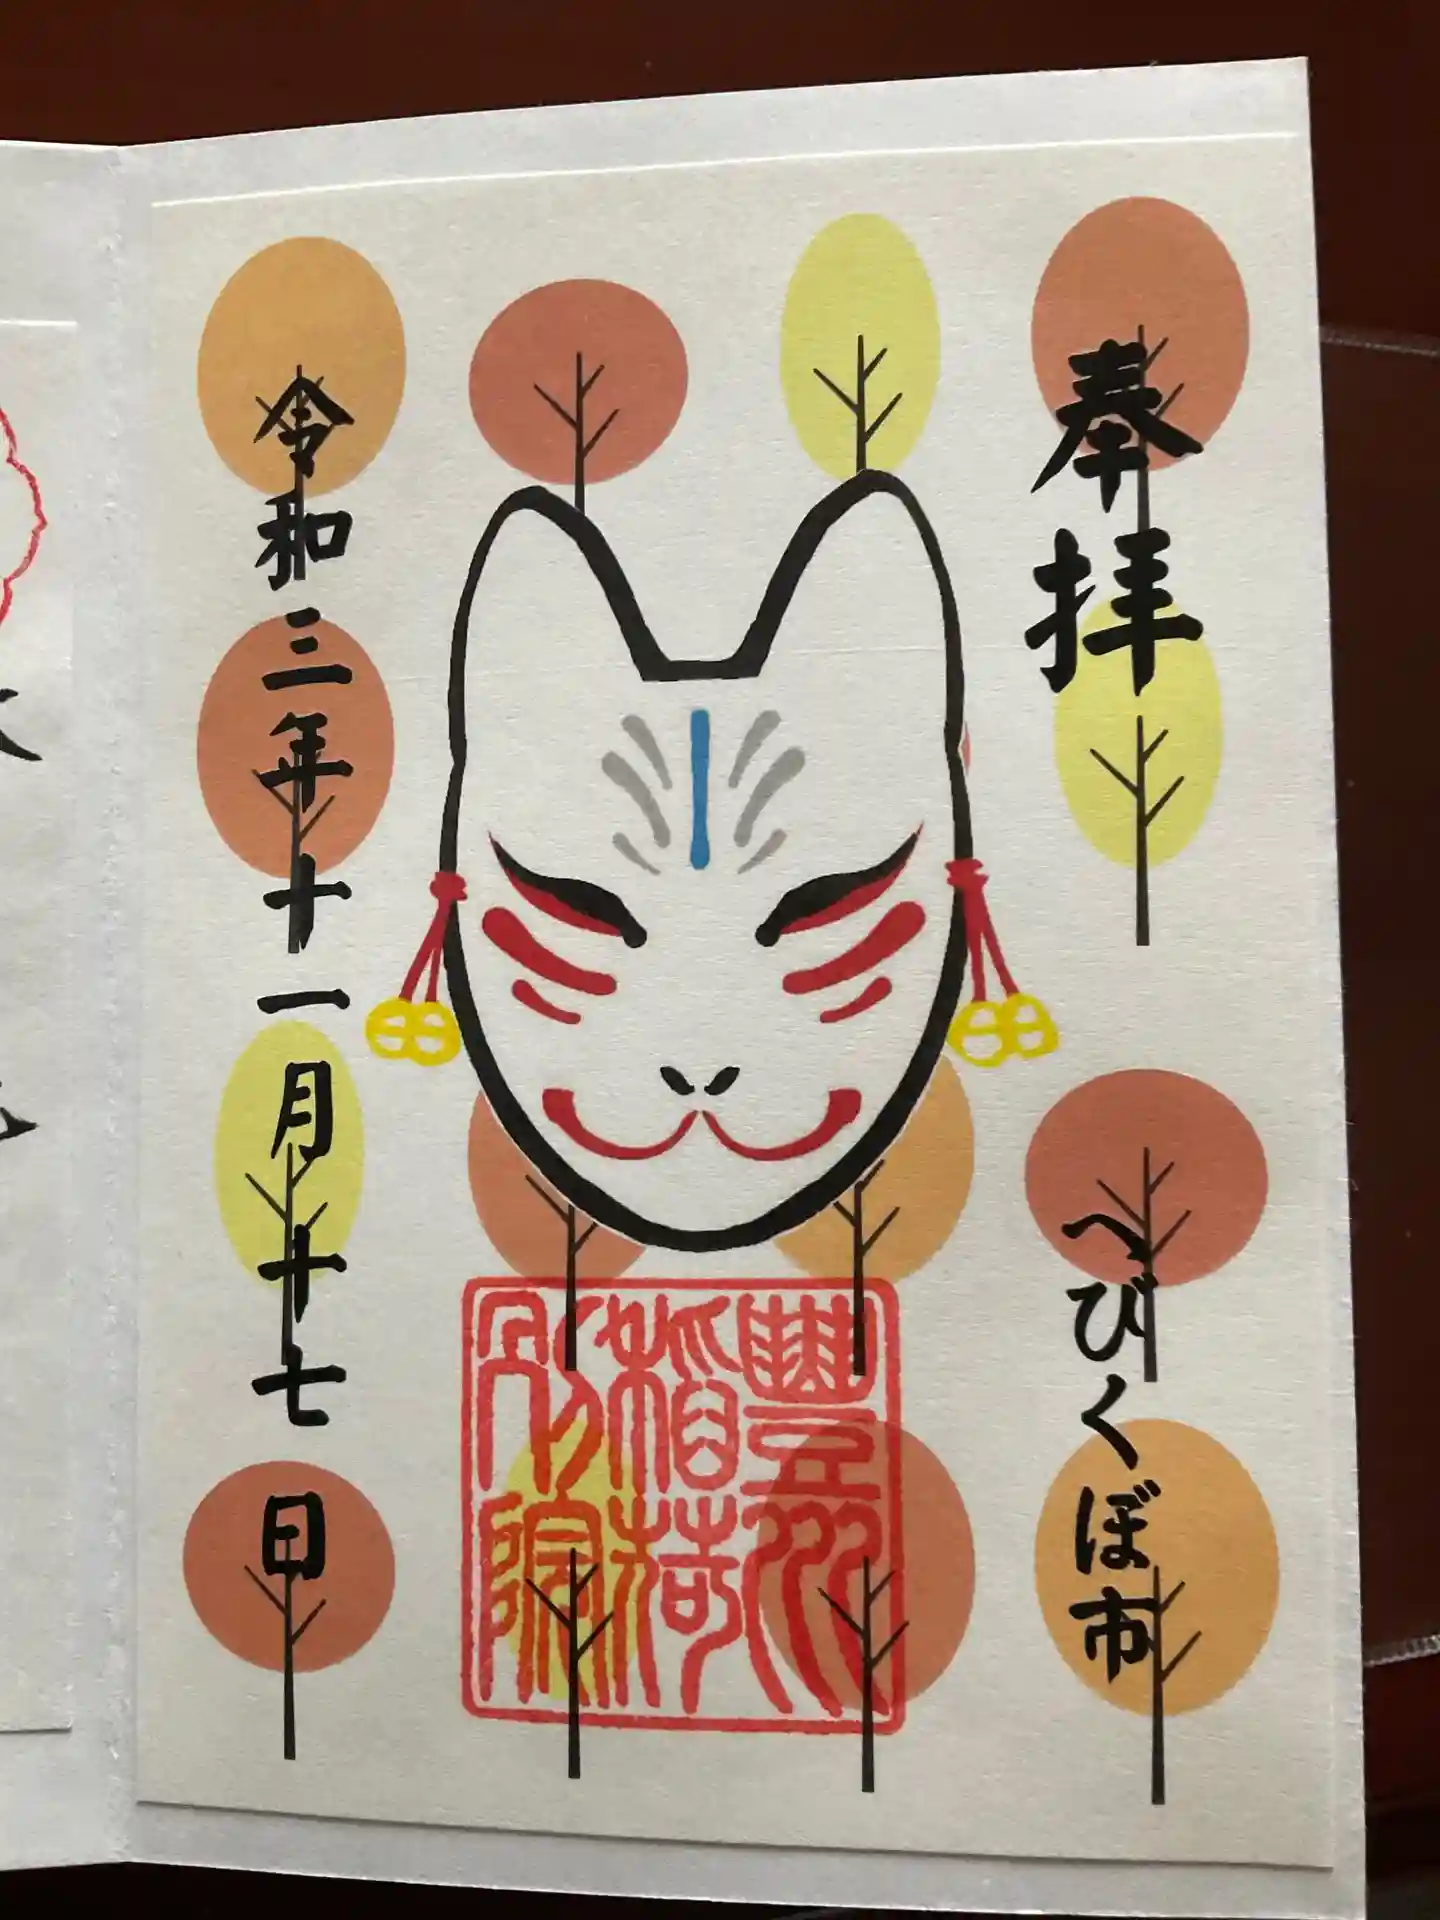 奉拝
へびくぼ市
豐川
稲荷
別院
令和三年十一月十七日